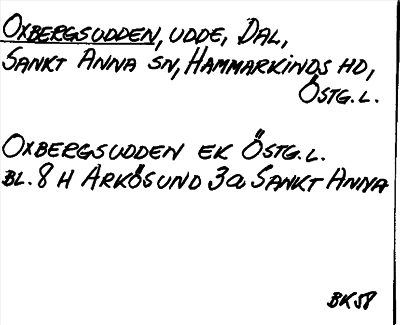 OXBERGSUDDEN, UDDE, DAL,
SANKT ANNA SN, HAMMARKINDS HD,
ÖSTG.L.
OXBERGSUDDEN EK ÖSTG.L.
BL. 8 H ARKÖSUND 3a SANKT ANNA
BK58